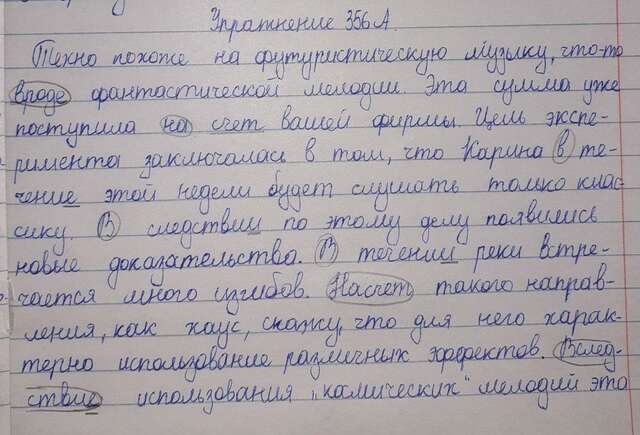 Упражнение 356А.
Техно похоже на футуристическую музыку, что-то
вроде фантастической мелодии. Эта сумма уже
поступила на счет вашей фирмы. Цель экспе-
римента заключалась в том, что Карина в те-
чение этой недели будет слушать только клас-
сику. В следствии по этому делу появились
новые доказательства. В течении реки встре-
чается много изгибов. Насчет такого направ-
ления, как хаус, скажу, что для него харак-
терно использование различных эффектов. Вслед-
ствие использования „комических" мелодий это